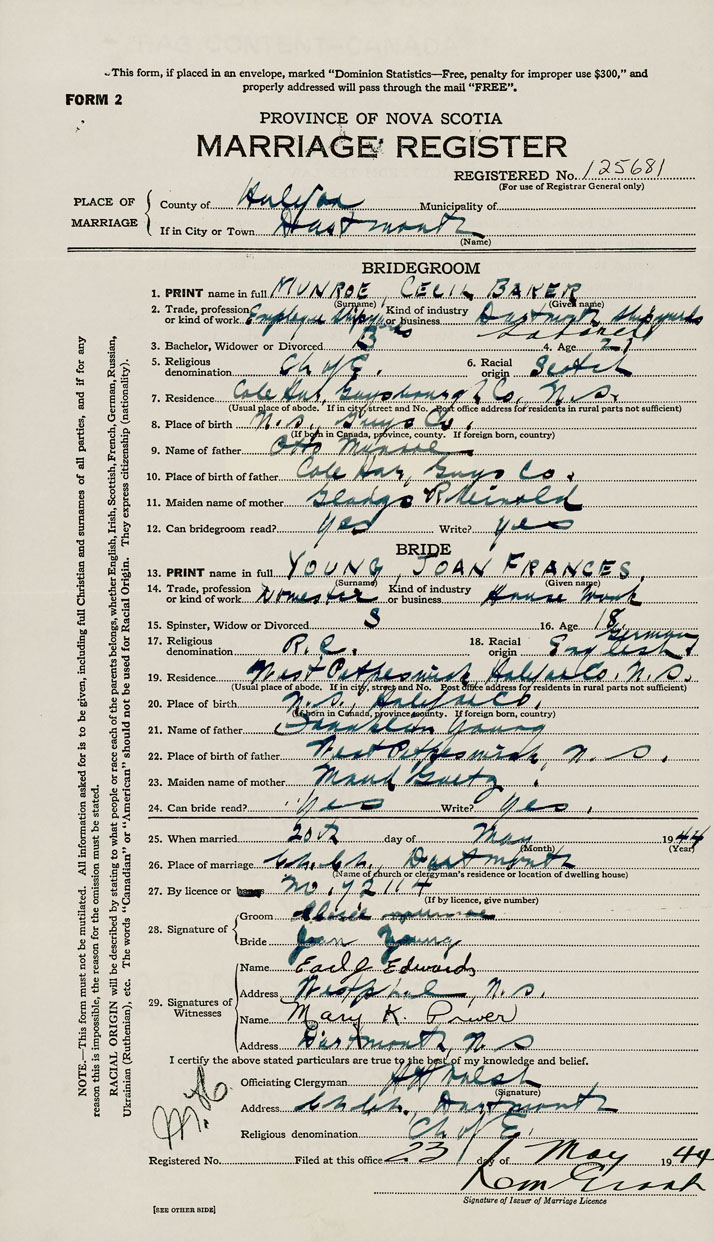 This form, if placed in an envelope, marked "Dominion Statistics—Free, penalty for improper use $300," and
properly addressed will pass through the mail "FREE".
FORM 2
PROVINCE OF NOVA SCOTIA
MARRIAGE REGISTER
REGISTERED No. 125681
(For use of Registrar General only)
PLACE OF MARRIAGE
County of Halifax Municipality of
If in City or Town Dartmouth
(Name)
BRIDEGROOM
1. PRINT name in full MUNROE, CECIL BAKER
(Surname) (Given name)
2. Trade, profession or kind of work Employee Kind of industry or business Dartmouth Shipyards
3. Bachelor, Widower or Divorced B 4. Age 21
5. Religious denomination Ch of E. 6. Racial origin Scotch
7. Residence Cole Har, Guysbourgh Co, N.S.
(Usual place of abode. If in city, street and No. Post office address for residents in rural parts not sufficient)
8. Place of birth N.S., Guys Co.
(If born in Canada, province, county. If foreign born, country)
9. Name of father Otto Munroe
10. Place of birth of father Cole Har, Guys Co.
11. Maiden name of mother Gladys
12. Can bridegroom read? yes Write? yes
BRIDE
13. PRINT name in full YOUNG, JOAN FRANCES.
(Surname) (Given name)
14. Trade, profession or kind of work Domestic Kind of industry or business House Work
15. Spinster, Widow or Divorced S 16. Age 18.
17. Religious denomination R.C. 18. Racial origin German English
19. Residence West Petpeswick, Halifax Co. N.S.
(Usual place of abode. If in city, street and No. Post office address for residents in rural parts not sufficient)
20. Place of birth N.S., Halifax Co.
(If born in Canada, province county. If foreign born, country)
21. Name of father Franklin Young
22. Place of birth of father West Petpeswick, N.S.
23. Maiden name of mother Maud
24. Can bride read? yes Write? yes.
25. When married 20th day of May 1944
(Month) (Year)
26. Place of marriage Ch. Ch. Dartmouth
(Name of church or clergyman's residence or location of dwelling house)
27. By licence or banns No. 72114
(If by licence, give number)
28. Signature of
Groom
Bride Joan Young
29. Signatures of Witnesses
Name Earl J Edwards
Address Westphal, N.S.
Name Mary K. Power
Address Dartmouth, N S
I certify the above stated particulars are true to the best of my knowledge and belief.
Officiating Clergyman
(Signature)
Address Ch. Ch., Dartmouth
Religious denomination Ch of E.
Registered No. Filed at this office 23 day of May 1944
Signature of Issuer of Marriage Licence
[SEE OTHER SIDE]
NOTE.—This form must not be mutilated. All information asked for is to be given, including full Christian and surnames of all parties, and if for any
reason this is impossible, the reason for the omission must be stated.
RACIAL ORIGIN will be described by stating to what people or race each of the parents belongs, whether English, Irish, Scottish, French, German, Russian,
Ukrainian (Ruthenian), etc. The words "Canadian" or "American" should not be used for Racial Origin. They express citizenship (nationality).